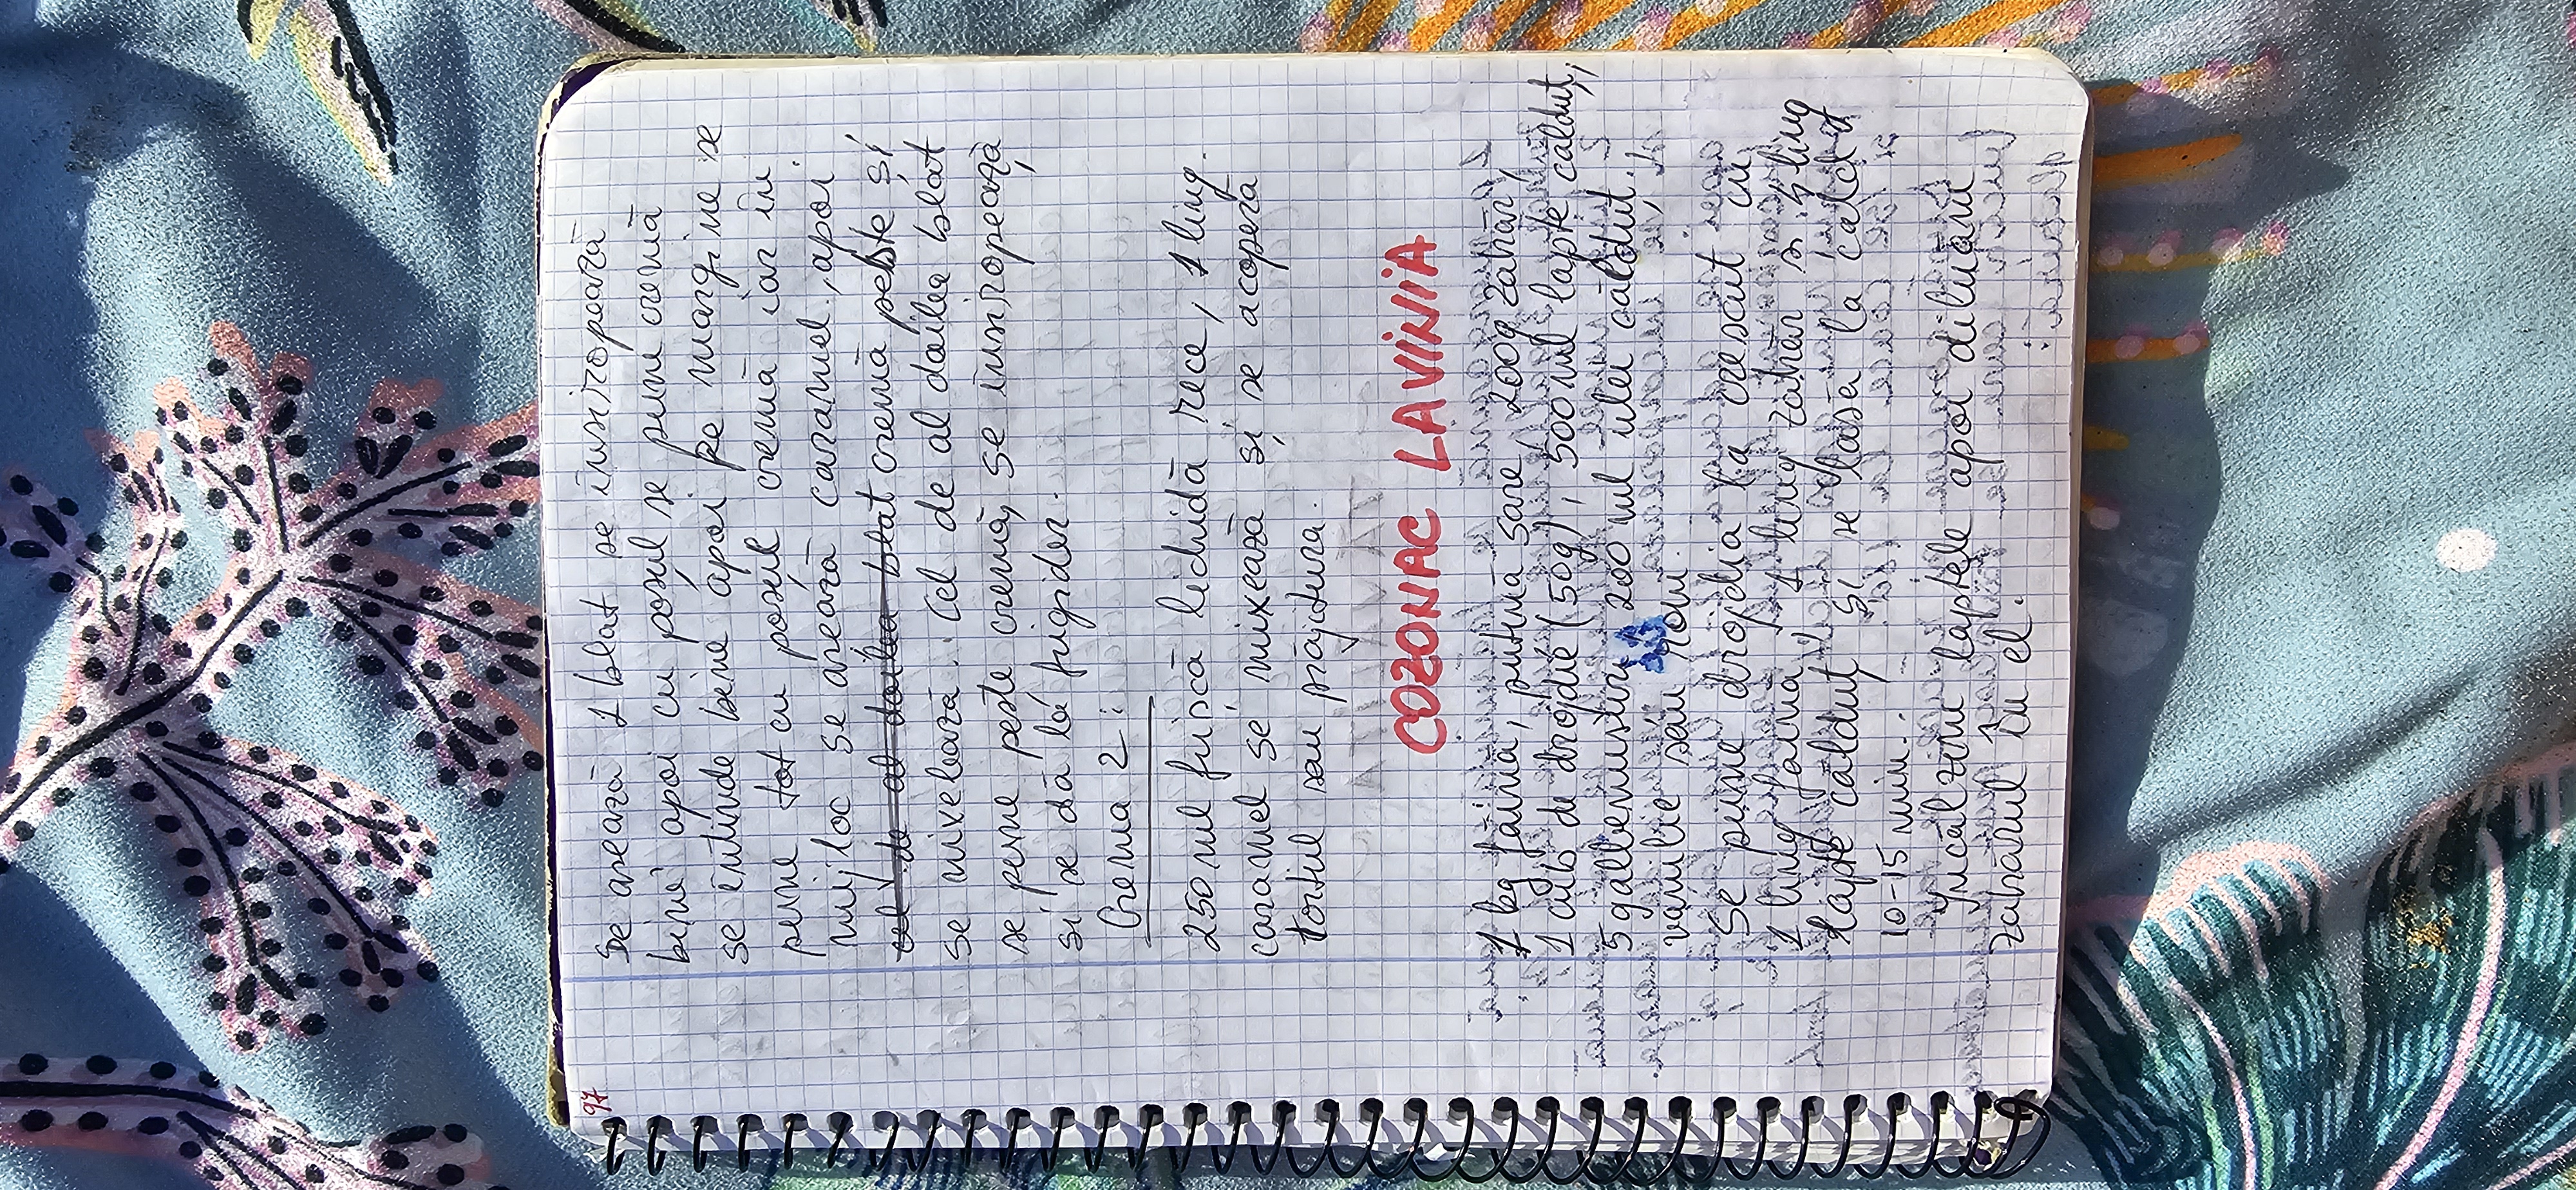 97
Se asează 1 blat se însiropează
bine apoi cu poșul se pune cremă
se întinde bine apoi pe margine se
pune tot cu poșul cremă iar în
mijloc se așează caramel, apoi
cel de al doilea blat cremă peste și
se nivelează. Cel de al doilea blat
se pune peste cremă, se însiropează
și se dă la frigider.
Crema 2:
250 ml frișcă lichidă rece, 1 ling.
caramel se mixează și se acoperă
tortul sau prăjitura.
COZONAC LAVINIA
1 kg făină, puțină sare, 200g zahăr,
1 cub de drojdie (50g), 500 ml lapte călduț,
5 gălbenușuri 200 ml ulei călduț,
vanilie sau rom.
Se pune drojdia la crescut cu
1 ling făină, 1 ling zahăr și 4 ling
lapte călduț și se lasă la cald
10-15 min.
Încălzim laptele apoi diluăm
zahărul în el.